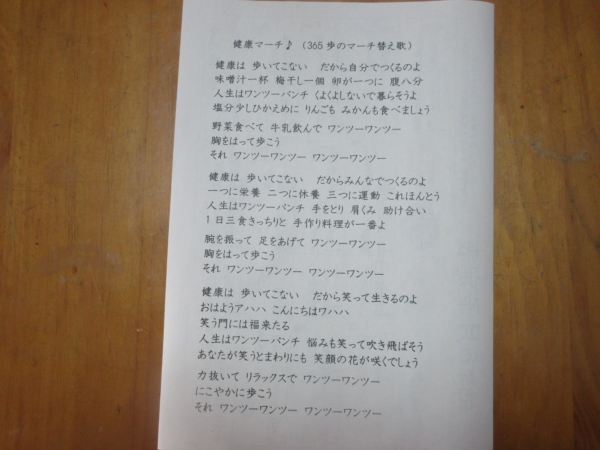 健康マーチ♪ (365歩のマーチ替え歌)
健康は 歩いてこない だから自分でつくるのよ
味噌汁一杯 梅干し一個 卵が一つに 腹八分
人生はワンツーパンチ くよくよしないで暮らそうよ
塩分少しひかえめに りんごも みかんも食べましょう
野菜食べて 牛乳飲んで ワンツーワンツー
胸をはって歩こう
それ ワンツーワンツー ワンツーワンツー
健康は 歩いてこない だからみんなでつくるのよ
一つに栄養 二つに休養 三つに運動 これほんとう
人生はワンツーパンチ 手をとり 肩くみ 助け合い
1日三食きっちりと 手作り料理が一番よ
腕を振って 足をあげて ワンツーワンツー
胸をはって歩こう
それ ワンツーワンツー ワンツーワンツー
健康は 歩いてこない だから笑って生きるのよ
おはようアハハ こんにちはワハハ
笑う門には福来たる
人生はワンツーパンチ 悩みも笑って吹き飛ばそう
あなたが笑うとまわりにも 笑顔の花が咲くでしょう
力抜いて リラックスで ワンツーワンツー
にこやかに歩こう
それ ワンツーワンツー ワンツーワンツー